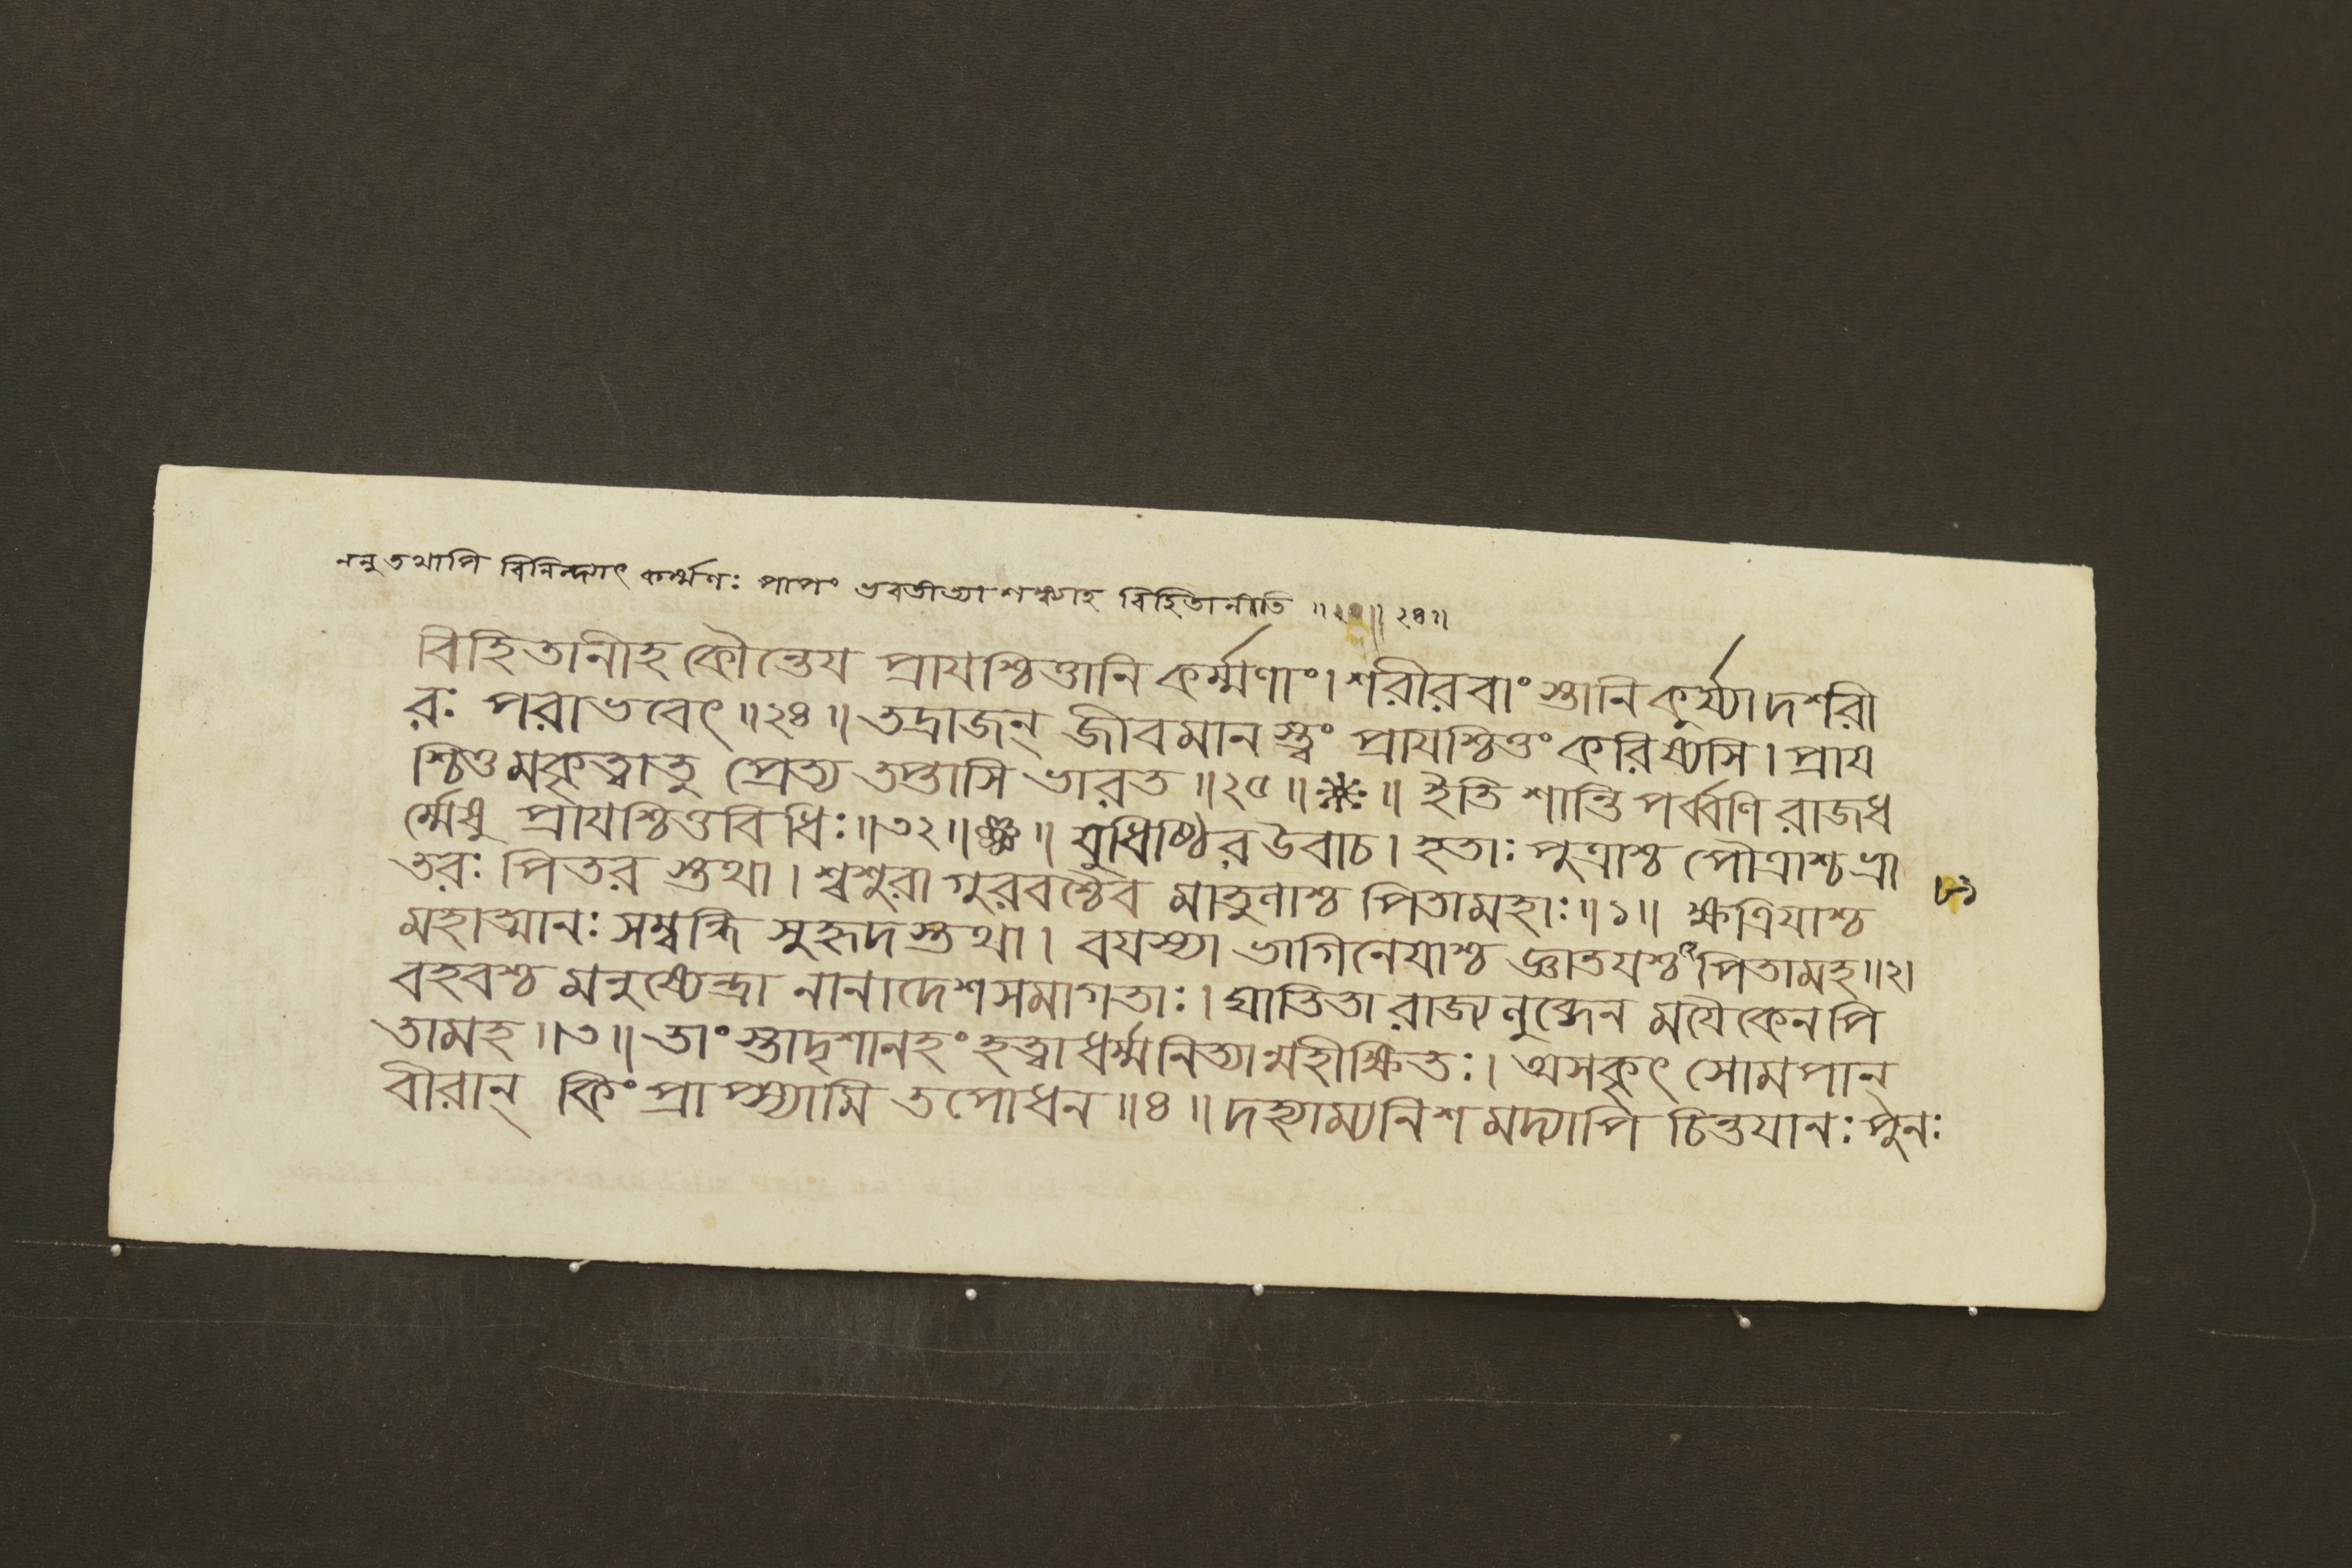 ননু তথাপি বিনিন্দ্যাৎ কর্ম্মণঃ পাপং ভবতীত্যাশঙ্ক্যাহ বিহিতানীতি ॥ ২৪॥
বিহিতানীহ কৌন্তেয প্রাযশ্চিত্তানি কর্ম্মণাং। শরীরবাংস্তানি কুর্য্যাদশরী
রঃ পরাভবেৎ ॥২৪॥ তদ্রাজন্ জীবমানস্ত্বং প্রাযশ্চিত্তং করিষ্যসি। প্রায
শ্চিত্তমকৃত্বাতু প্রেত্য তপ্তাসি ভারত ॥২৫॥※॥ ইতি শান্তিপর্ব্বণি রাজধ
র্ম্মেষু প্রাযশ্চিত্তবিধিঃ॥৩২॥ ॥ যুধিষ্ঠির উবাচ। হতাঃ পুত্রাশ্চ পৌত্রাশ্চ ভ্রা
তরঃ পিতরস্তথা। শ্বশুরা গুরবশ্চৈব মাতুলাশ্চ পিতামহাঃ॥১॥ ক্ষত্রিযাশ্চ
মহাত্মানঃ সম্বন্ধি সুহৃদস্তথা। বযস্যা ভাগিনেযাশ্চ জ্ঞাতযশ্চ পিতামহ॥২।
বহবশ্চ মনুষ্যেন্দ্রা নানাদেশসমাগতাঃ। ঘাতিতা রাজ্যলুব্ধেন মযৈকেন পি
তামহ ॥৩॥ তাংস্তাদৃশানহং হত্বা ধর্ম্মনিত্যান্মহীক্ষিতঃ। অসকৃৎ সোমপান্
বীরান্ কিং প্রাপ্স্যামি তপোধন ॥৪॥ দহ্যাম্যনিশমদ্যাপি চিন্তযানঃ পুনঃ